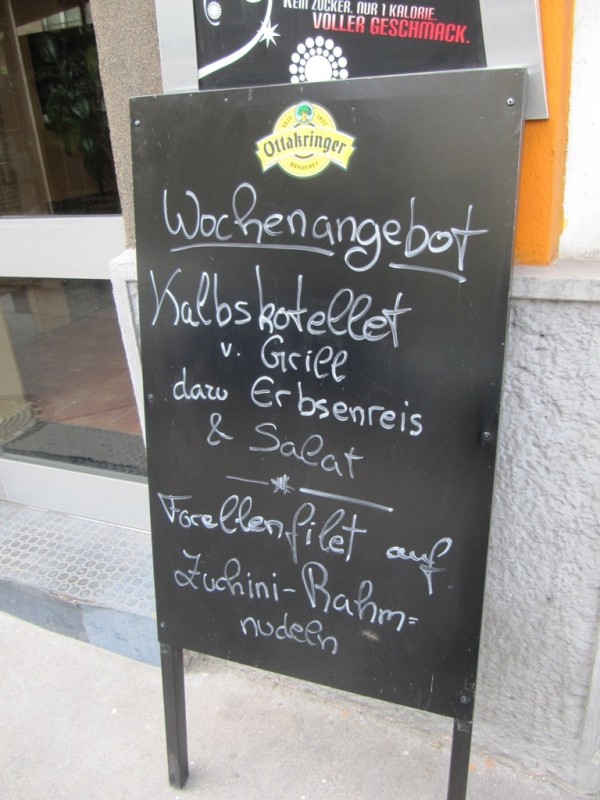 KEIN ZUCKER. NUR 1 KALORIE.
VOLLER GESCHMACK.
SEIT 1837
Ottakringer
BRAUEREI
Wochenangebot
Kalbskotellet
v. Grill
dazu Erbsenreis
& Salat
Forellenfilet auf
Zuchini-Rahm=
nudeln